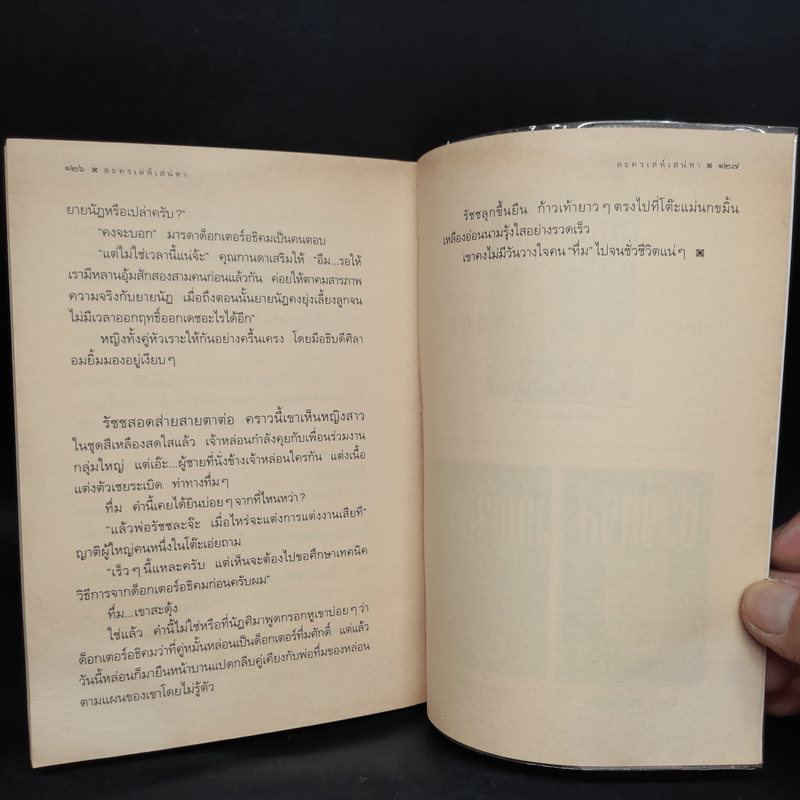 ๑๒๖ ※ ละครเล่ห์เสน่หา
ยายนัฏหรือเปล่าครับ?"
"คงจะบอก" มารดาด็อกเตอร์อธิคมเป็นคนตอบ
"แต่ไม่ใช่เวลานี้แน่จ้ะ" คุณกานดาเสริมให้ "อืม...รอให้
เรามีหลานอุ้มสักสองสามคนก่อนแล้วกัน ค่อยให้ตาคมสารภาพ
ความจริงกับยายนัฏ เมื่อถึงตอนนั้นยายนัฏคงยุ่งเลี้ยงลูกจน
ไม่มีเวลาออกฤทธิ์ออกเดชอะไรได้อีก"
หญิงทั้งคู่หัวเราะให้กันอย่างครื้นเครง โดยมีอธิบดีศิลา
อมยิ้มมองอยู่เงียบๆ
รัชชสอดส่ายสายตาต่อ คราวนี้เขาเห็นหญิงสาว
ในชุดสีเหลืองสดใสแล้ว เจ้าหล่อนกำลังคุยกับเพื่อนร่วมงาน
กลุ่มใหญ่ แต่เอ๊ะ...ผู้ชายที่นั่งข้างเจ้าหล่อนใครกัน แต่งเนื้อ
แต่งตัวเชยระเบิด ท่าทางทึ่มๆ
ทึ่ม คำนี้เคยได้ยินบ่อยๆ จากที่ไหนหว่า?
"แล้วพ่อรัชชละจ๊ะ เมื่อไหร่จะแต่งการแต่งงานเสียที"
ญาติผู้ใหญ่คนหนึ่งในโต๊ะเอ่ยถาม
"เร็วๆ นี้แหละครับ แต่เห็นจะต้องไปขอศึกษาเทคนิค
วิธีการจากด็อกเตอร์อธิคมก่อนครับผม"
ทึ่ม...เขาสะดุ้ง
ใช่แล้ว คำนี้ไม่ใช่หรือที่นัฏศิมาพูดกรอกหูเขาบ่อยๆ ว่า
ด็อกเตอร์อธิคมว่าที่คู่หมั้นหล่อนเป็นด็อกเตอร์ทึ่มศักดิ์ แต่แล้ว
วันนี้หล่อนก็มายืนหน้าบานแปดกลีบคู่เคียงกับพ่อทึ่มของหล่อน
ตามแผนของเขาโดยไม่รู้ตัว
ละครเล่ห์เสน่หา ※ ๑๒๗
รัชชลุกขึ้นยืน ก้าวเท้ายาวๆ ตรงไปที่โต๊ะแม่นกขมิ้น
เหลืองอ่อนนามรุ้งใสอย่างรวดเร็ว
เขาคงไม่มีวันวางใจคน "ทึ่ม" ไปจนชั่วชีวิตแน่ๆ ※